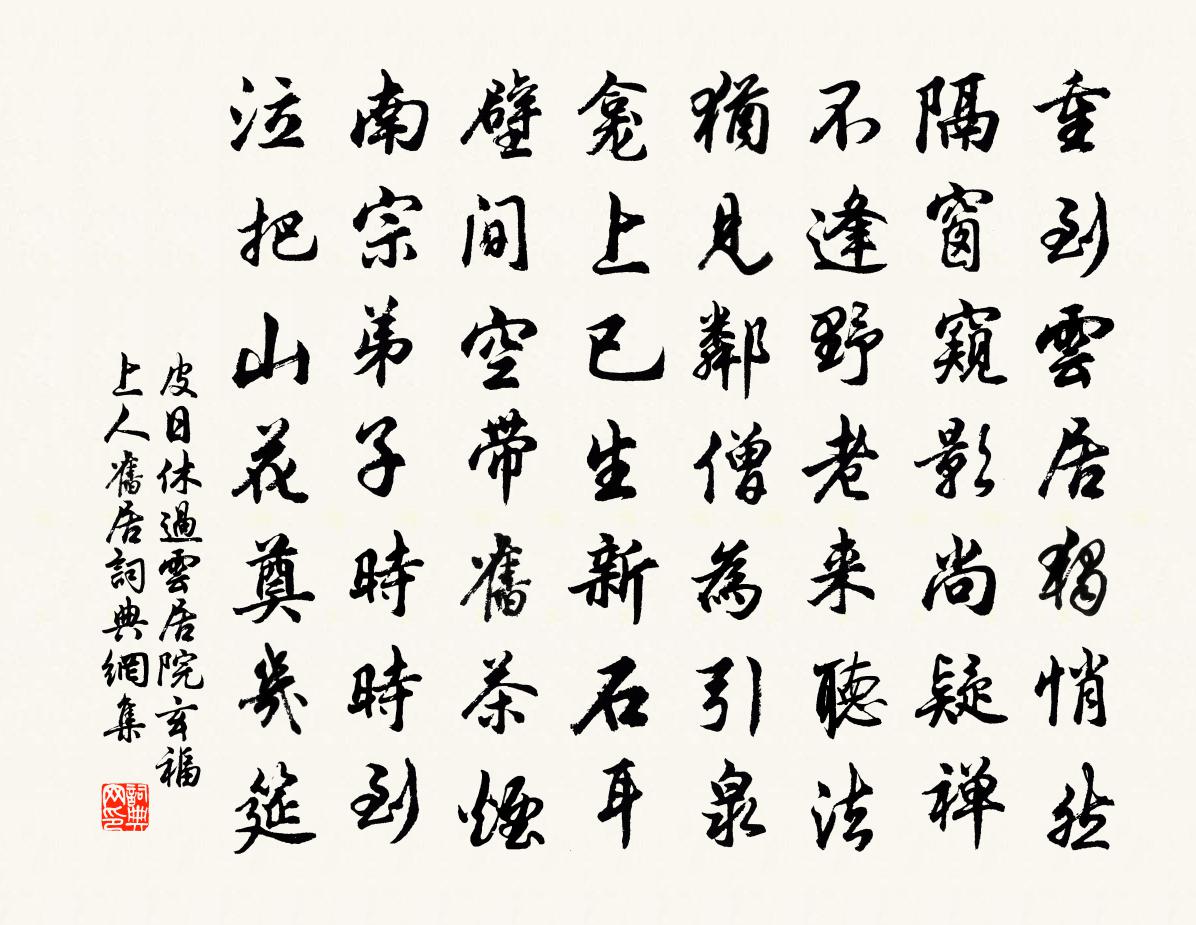 重到雲居獨悄然
隔窗窺影尚疑禅
不逢野老来聽法
猶見鄰僧為引泉
龛上已生新石耳
壁间空带舊茶煙
南宗弟子時時到
泣把山花奠幾筵
皮日休過雲居院玄福
上人舊居詞典網集
詞典
网印